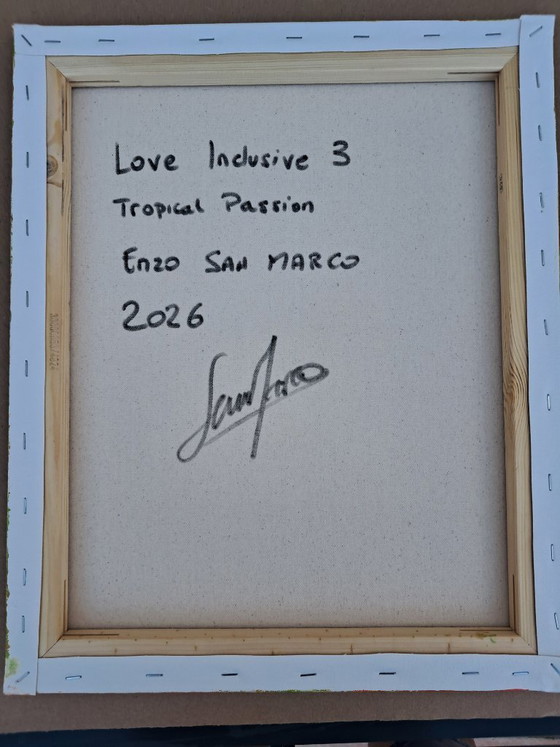 Love Inclusive 3
Tropical Passion
Enzo SAN MARCO
2026
SanMarco